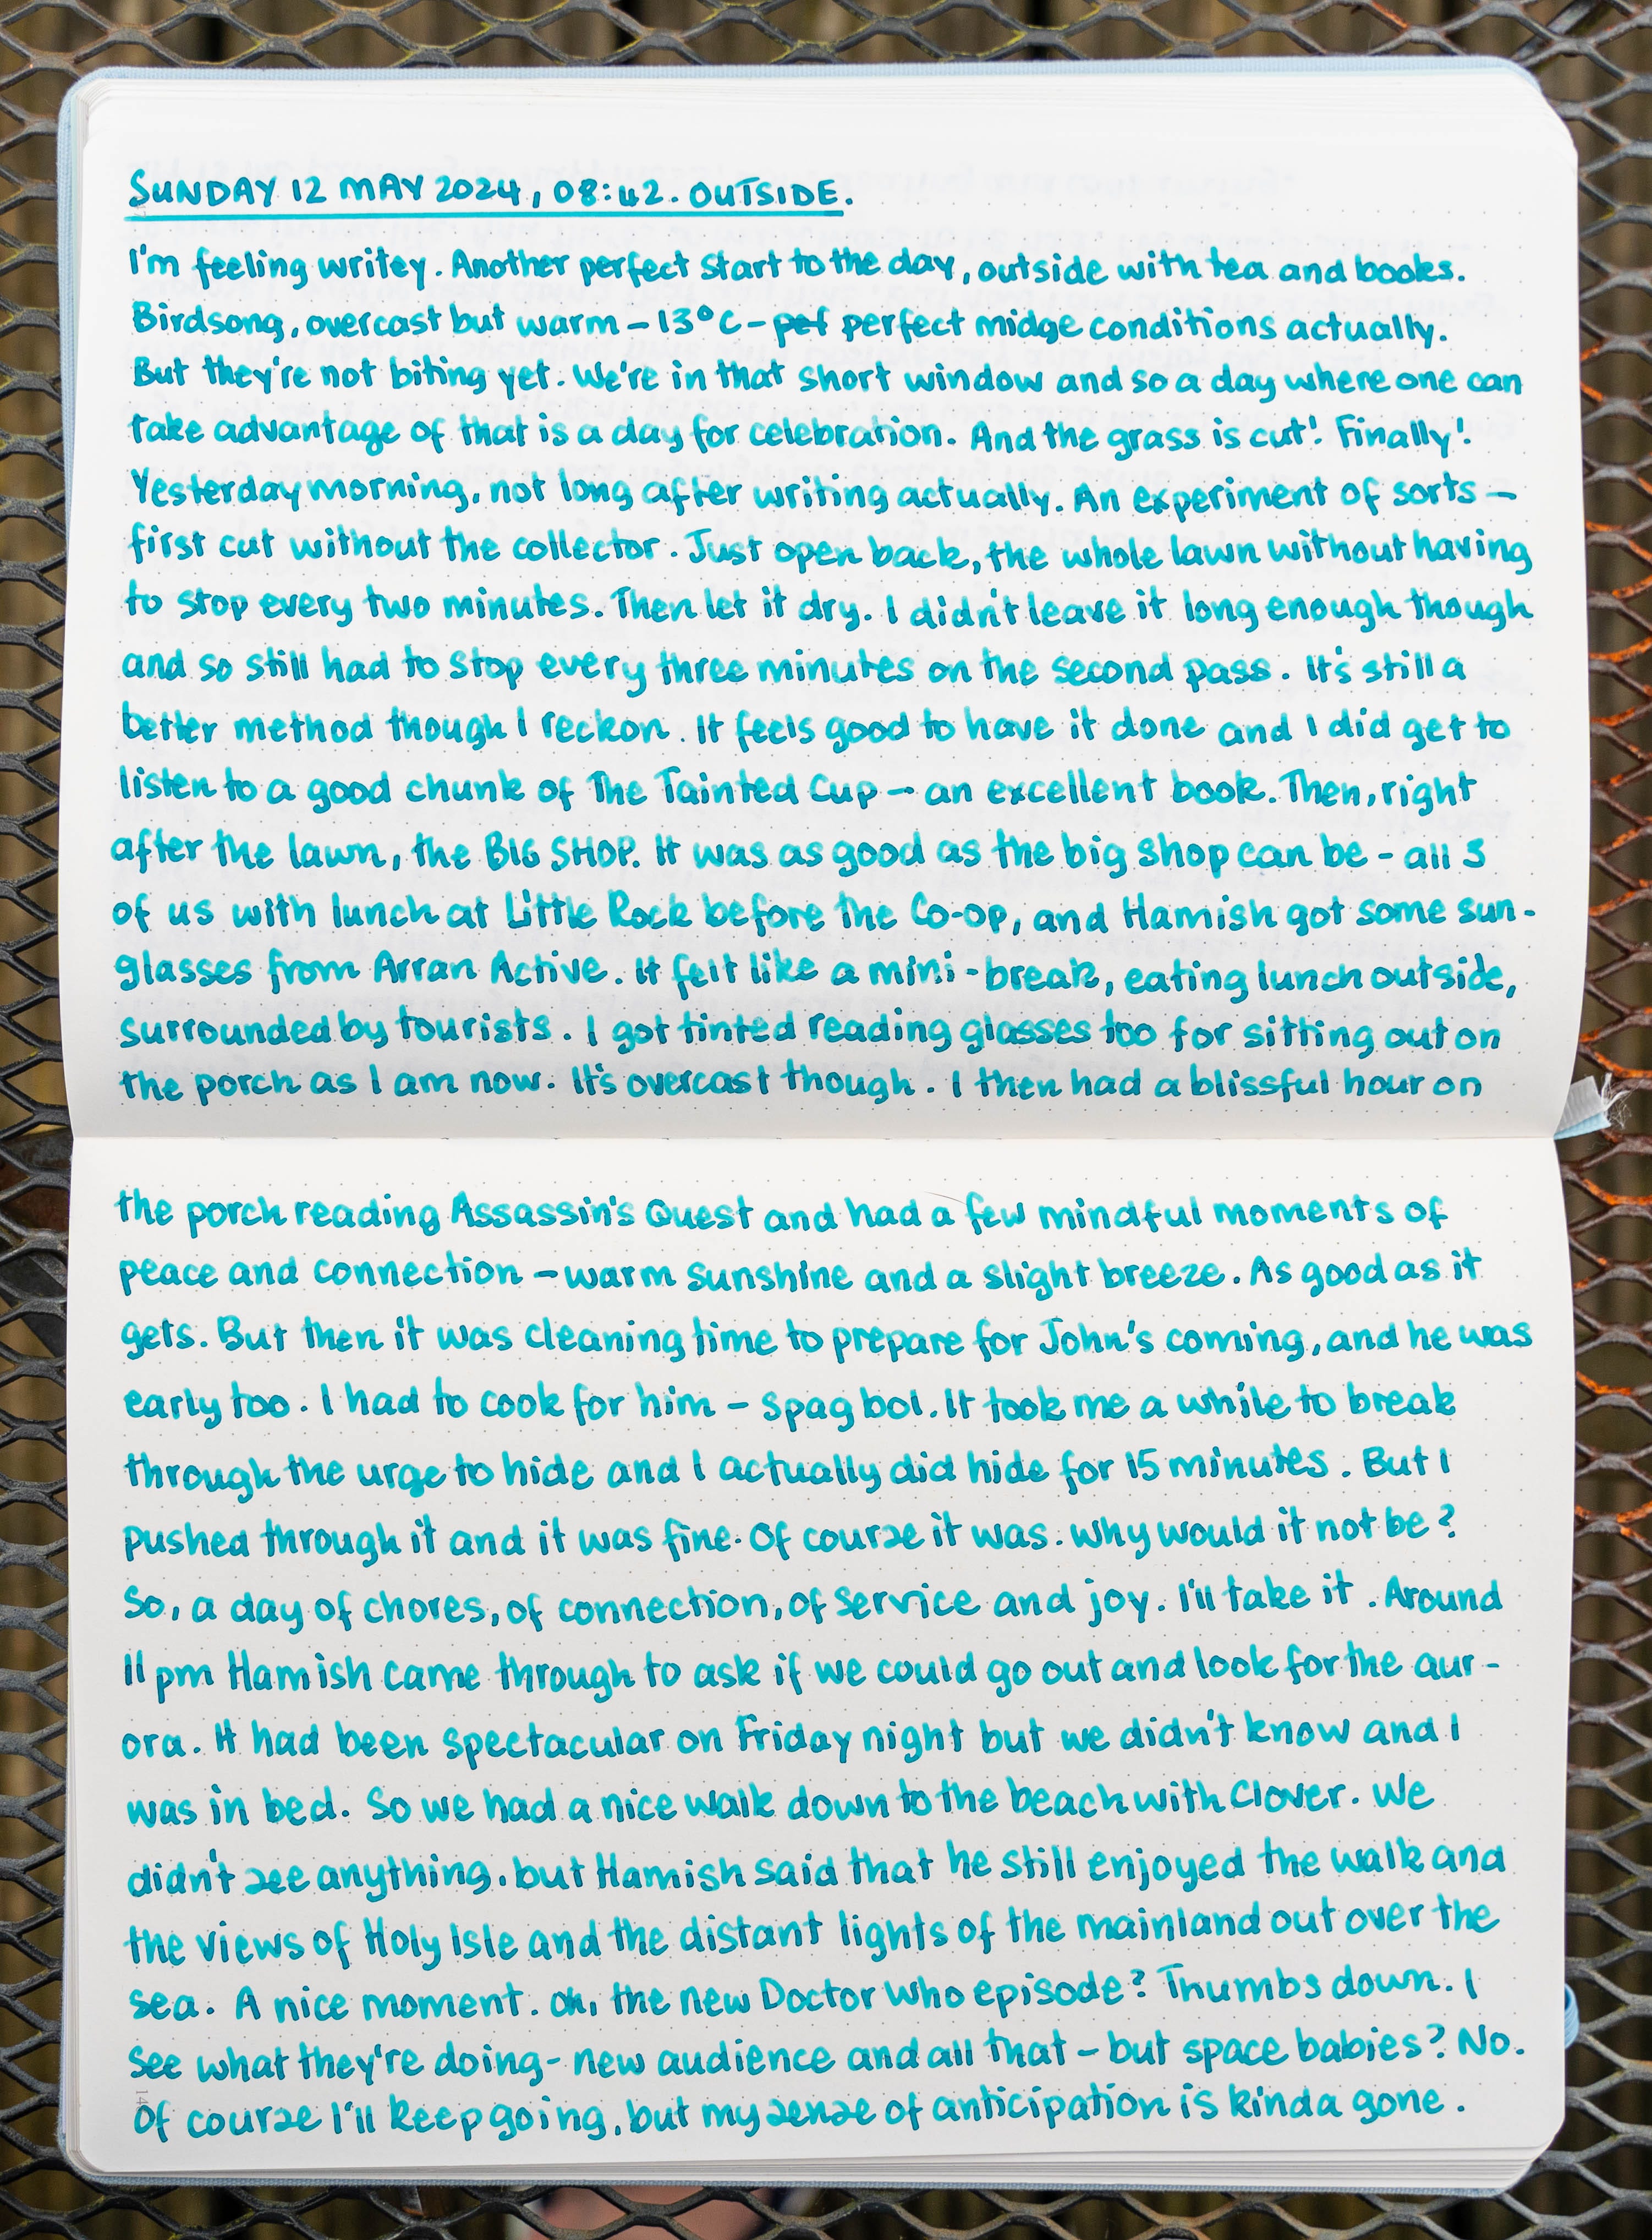 SUNDAY 12 MAY 2024, 08:42. OUTSIDE.
I'm feeling writey. Another perfect start to the day, outside with tea and books.
Birdsong, overcast but warm – 13°C – pef perfect midge conditions actually.
But they're not biting yet. We're in that short window and so a day where one can
take advantage of that is a day for celebration. And the grass is cut! Finally!
Yesterday morning, not long after writing actually. An experiment of sorts –
first cut without the collector. Just open back, the whole lawn without having
to stop every two minutes. Then let it dry. I didn't leave it long enough though
and so still had to stop every three minutes on the second pass. It's still a
better method though I reckon. It feels good to have it done and I did get to
listen to a good chunk of The Tainted Cup – an excellent book. Then, right
after the lawn, the BIG SHOP. It was as good as the big shop can be – all 3
of us with lunch at Little Rock before the Co-op, and Hamish got some sun-
glasses from Arran Active. It felt like a mini-break, eating lunch outside,
surrounded by tourists. I got tinted reading glasses too for sitting out on
the porch as I am now. It's overcast though. I then had a blissful hour on
the porch reading Assassin's Quest and had a few mindful moments of
peace and connection – warm sunshine and a slight breeze. As good as it
gets. But then it was cleaning time to prepare for John's coming, and he was
early too. I had to cook for him – spag bol. It took me a while to break
through the urge to hide and I actually did hide for 15 minutes. But I
pushed through it and it was fine. Of course it was. Why would it not be?
So, a day of chores, of connection, of service and joy. I'll take it. Around
11pm Hamish came through to ask if we could go out and look for the aur-
ora. It had been spectacular on Friday night but we didn't know and I
was in bed. So we had a nice walk down to the beach with Clover. We
didn't see anything, but Hamish said that he still enjoyed the walk and
the views of Holy Isle and the distant lights of the mainland out over the
sea. A nice moment. Oh, the new Doctor Who episode? Thumbs down. I
see what they're doing – new audience and all that – but space babies? No.
Of course I'll keep going, but my sense of anticipation is kinda gone.